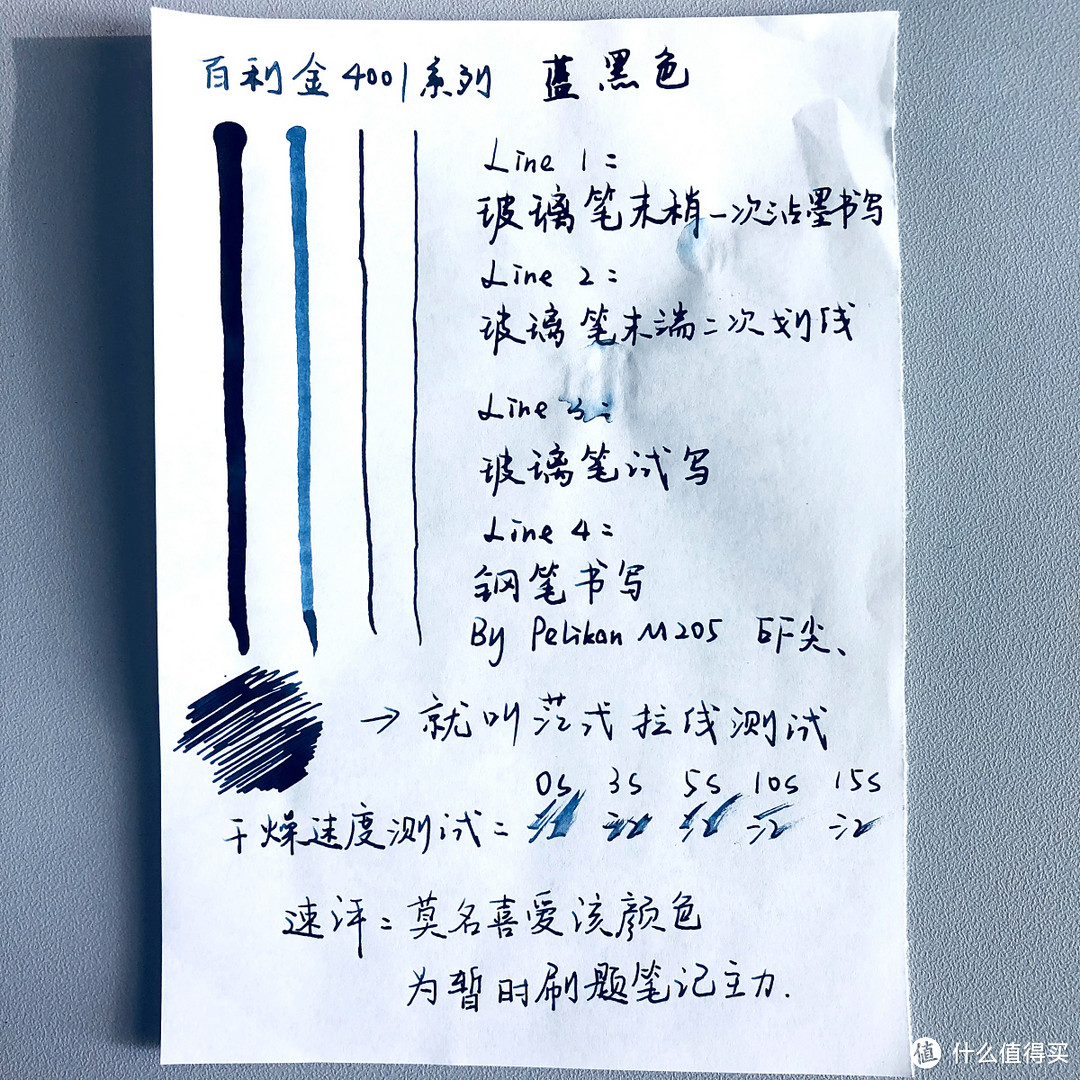 百利金4001系列 蓝黑色
Line 1:
玻璃笔末稍一次沾墨书写
Line 2:
玻璃笔末端二次划线
Line 3:
玻璃笔试写
Line 4:
钢笔书写
By Pelikan M205 EF尖、
→就叫范式拉线测试
0s 3s 5s 10s 15s
干燥速度测试:
速评:莫名喜爱该颜色
为暂时刷题笔记主力.
值 什么值得买